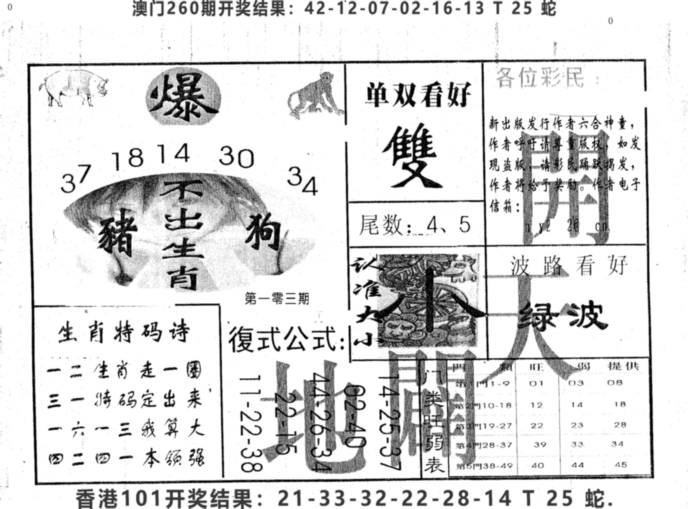 澳门260期开奖结果：42-12-07-02-16-13 T 25 蛇
0
0
爆
37 18 14 30 34
不出生肖
豬
狗
第一零三期
单双看好
雙
尾数：4、5
各位彩民：
新出版发行作者六合神童，
作者呼吁请尊重版权，如发
现盗版，请彩民踊跃揭发，
作者将给予奖励。作者电子
信箱：
認准大小
小
波路看好
绿波
開天
闢地
生肖特码诗
一二生肖走一圈
三一特码定出来
一六一三我算大
四二四一本领强
復式公式：
11-22-38
22-15
44-26-34
02-40
14-25-37
门类旺弱表
門 類 旺 弱 提供
第1門1-9 01 03 08
第2門10-18 12 14 18
第3門19-27 22 23 28
第4門28-37 39 33 34
第5門38-49 40 44 45
香港101开奖结果：21-33-32-22-28-14 T 25 蛇.